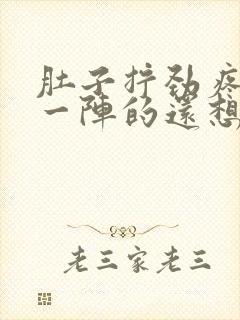 肚子拧劲疼
一陣的還想
老三家老三